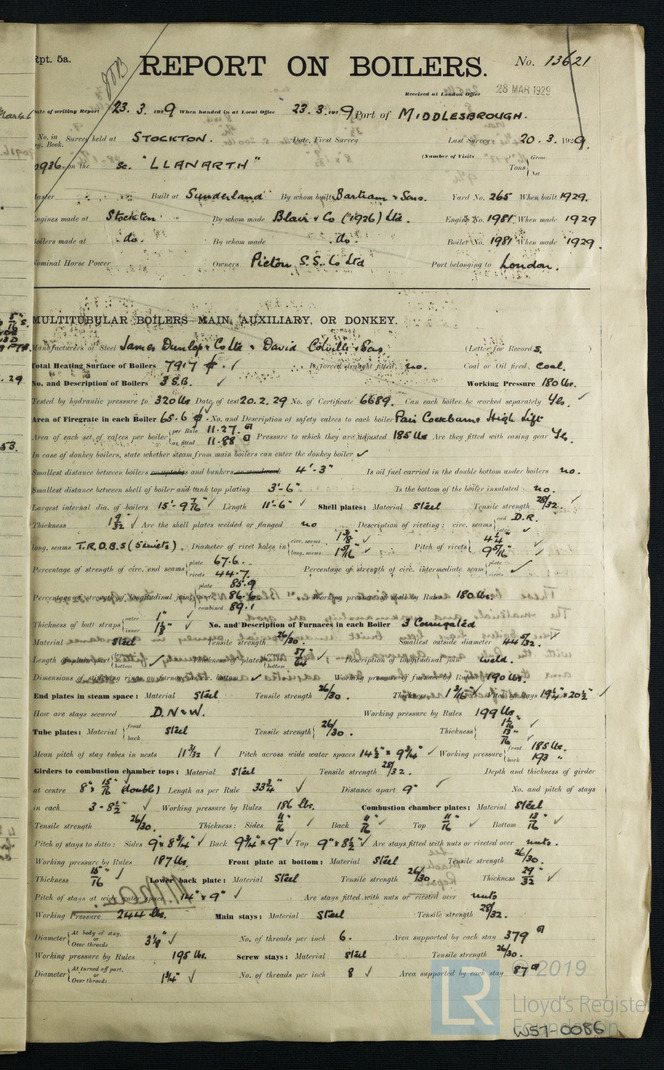 Rpt. 5a.
REPORT ON BOILERS.
No. 13621
Received at London Office 28 MAR 1929
Date of writing Report 23.3.1929 When handed in at Local Office 23.3.1929 Port of MIDDLESBROUGH.
No. in Reg. Book. Survey held at STOCKTON. Date, First Survey Last Survey 20.3.1929.
on the Sc. "LLANARTH" (Number of Visits Gross Tons Net
Master Built at Sunderland By whom built Bartram & Sons. Yard No. 265 When built 1929.
Engines made at Stockton By whom made Blair & Co (1926) Ltd. Engine No. 1981 When made 1929
Boilers made at do. By whom made do. Boiler No. 1981 When made 1929.
Nominal Horse Power Owners Picton S.S. Co Ltd Port belonging to London.
MULTITUBULAR BOILERS—MAIN, AUXILIARY, OR DONKEY.
Manufacturers of Steel James Dunlop & Co Ltd & David Colville & Sons (Letter for Record S.)
Total Heating Surface of Boilers 7917 Is forced draught fitted no. Coal or Oil fired coal.
No. and Description of Boilers 3 S.B. Working Pressure 180 lbs.
Tested by hydraulic pressure to 320 lbs Date of test 20.2.29 No. of Certificate 6689. Can each boiler be worked separately Yes.
Area of Firegrate in each Boiler 65.6 No. and Description of safety valves to each boiler Pair Cockburns High Lift
Area of each set of valves per boiler per Rule 11.27 as fitted 11.88 Pressure to which they are adjusted 185 lbs Are they fitted with easing gear Yes.
In case of donkey boilers, state whether steam from main boilers can enter the donkey boiler
Smallest distance between boilers and bunkers 4'-3" Is oil fuel carried in the double bottom under boilers no.
Smallest distance between shell of boiler and tank top plating 3'-6" Is the bottom of the boiler insulated no.
Largest internal dia. of boilers 15'-9 7/16" Length 11'-6" Shell plates: Material steel Tensile strength 28/32.
Thickness 1 9/32 Are the shell plates welded or flanged no Description of riveting: circ. seams end D.R.
long. seams T.R.D.B.S (5 rivets). Diameter of rivet holes in circ. seams 1 3/8" long. seams 1 5/16" Pitch of rivets 4.4" 9 5/16"
Percentage of strength of circ. end seams plate 67.6. rivets 44.7. Percentage of strength of circ. intermediate seam plate rivets
Percentage of strength of longitudinal joint plate 85.9 rivets 86.6 combined 89.1 Working pressure of shell by Rules 180 lbs.
Thickness of butt straps outer 1" inner 1 1/8" No. and Description of Furnaces in each Boiler 3 Corrugated
Material steel Tensile strength 26/30 Smallest outside diameter 44 5/32"
Length of plain part top bottom Thickness of plates crown bottom 37/64" Description of longitudinal joint weld.
Dimensions of stiffening rings on furnace or c.c. bottom Working pressure of furnace by Rules 190 lbs.
End plates in steam space: Material steel Tensile strength 26/30. Thickness 1 3/16" Pitch of stays 19 1/4" x 20 1/2"
How are stays secured D.N & W. Working pressure by Rules 199 lbs
Tube plates: Material front back steel Tensile strength 26/30. Thickness 1 1/16 13/16
Mean pitch of stay tubes in nests 11 3/32 Pitch across wide water spaces 14 1/2" x 9 3/4" Working pressure front 185 lbs. back 193 "
Girders to combustion chamber tops: Material steel Tensile strength 28/32. Depth and thickness of girder
at centre 8" x 15/16" (double) Length as per Rule 33 3/4" Distance apart 9" No. and pitch of stays
in each 3 - 8 1/2" Working pressure by Rules 186 lbs. Combustion chamber plates: Material steel
Tensile strength 26/30. Thickness: Sides 11/16" Back 11/16" Top 11/16" Bottom 13/16"
Pitch of stays to ditto: Sides 9" x 8 3/4" Back 9 3/4" x 9" Top 9" x 8 1/2" Are stays fitted with nuts or riveted over nuts.
Working pressure by Rules 187 lbs. Front plate at bottom: Material steel Tensile strength 26/30.
Thickness 15/16" Lower back plate: Material steel Tensile strength 26/30 Thickness 29/32
Pitch of stays at wide water space 14" x 9" Are stays fitted with nuts or riveted over nuts
Working Pressure 244 lbs. Main stays: Material steel Tensile strength 28/32.
Diameter At body of stay, or Over threads 3 1/8" No. of threads per inch 6. Area supported by each stay 379
Working pressure by Rules 195 lbs. Screw stays: Material steel Tensile strength 26/30.
Diameter At turned off part, or Over threads 1 3/4" No. of threads per inch 8 Area supported by each stay 87
© 2019
Lloyd's Register
Foundation
W57-0086